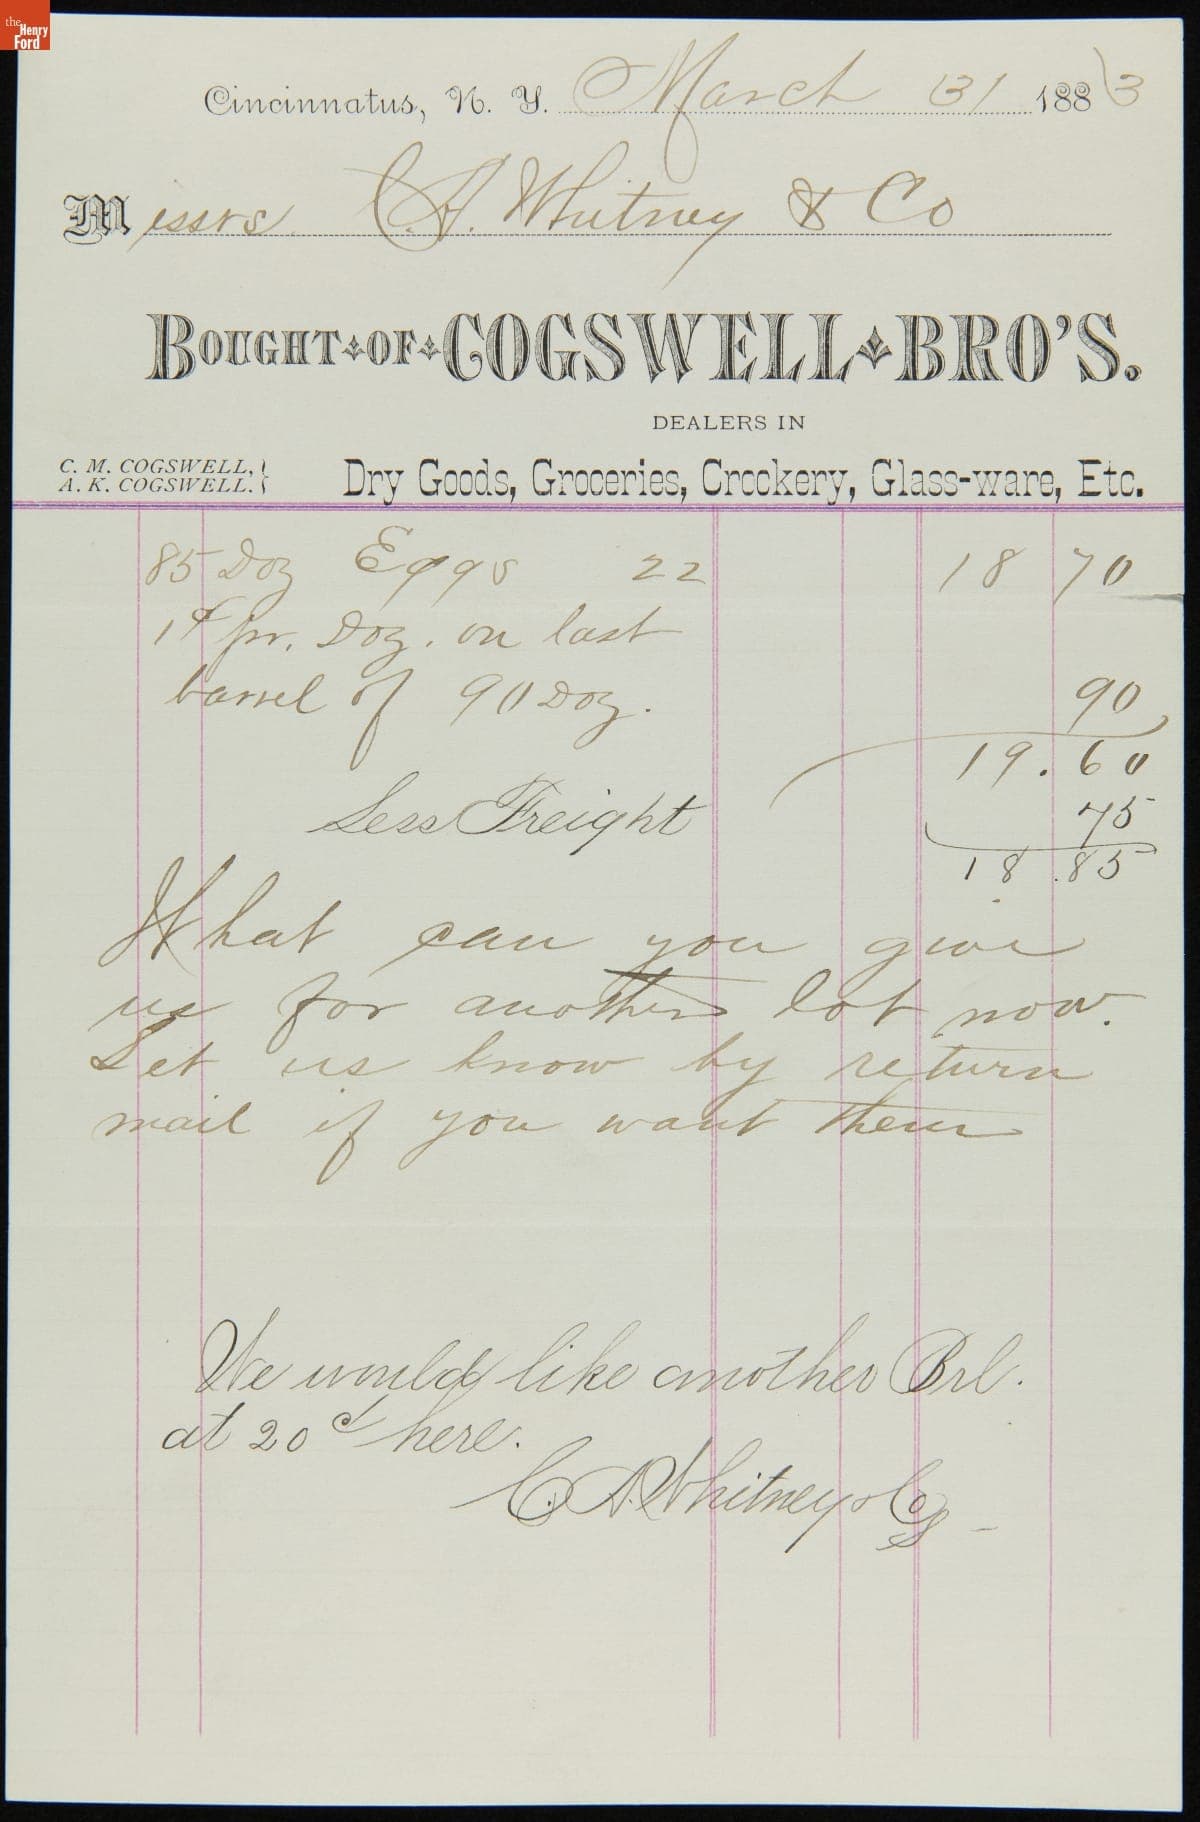 the
Henry
Ford
Cincinnatus, N. Y. March 31 1883
Messrs. C. A. Whitney & Co
BOUGHT OF COGSWELL BRO'S.
DEALERS IN
C. M. COGSWELL,
A. K. COGSWELL.
Dry Goods, Groceries, Crockery, Glass-ware, Etc.
85 Doz Eggs 22 18 70
1¢ pr. Doz. on last
barrel of 90 Doz. 90
19.60
Less Freight 75
18.85
What can you give
us for another lot now.
Let us know by return
mail if you want them
We would like another Brl.
at 20¢ here.
C. A. Whitney & Co